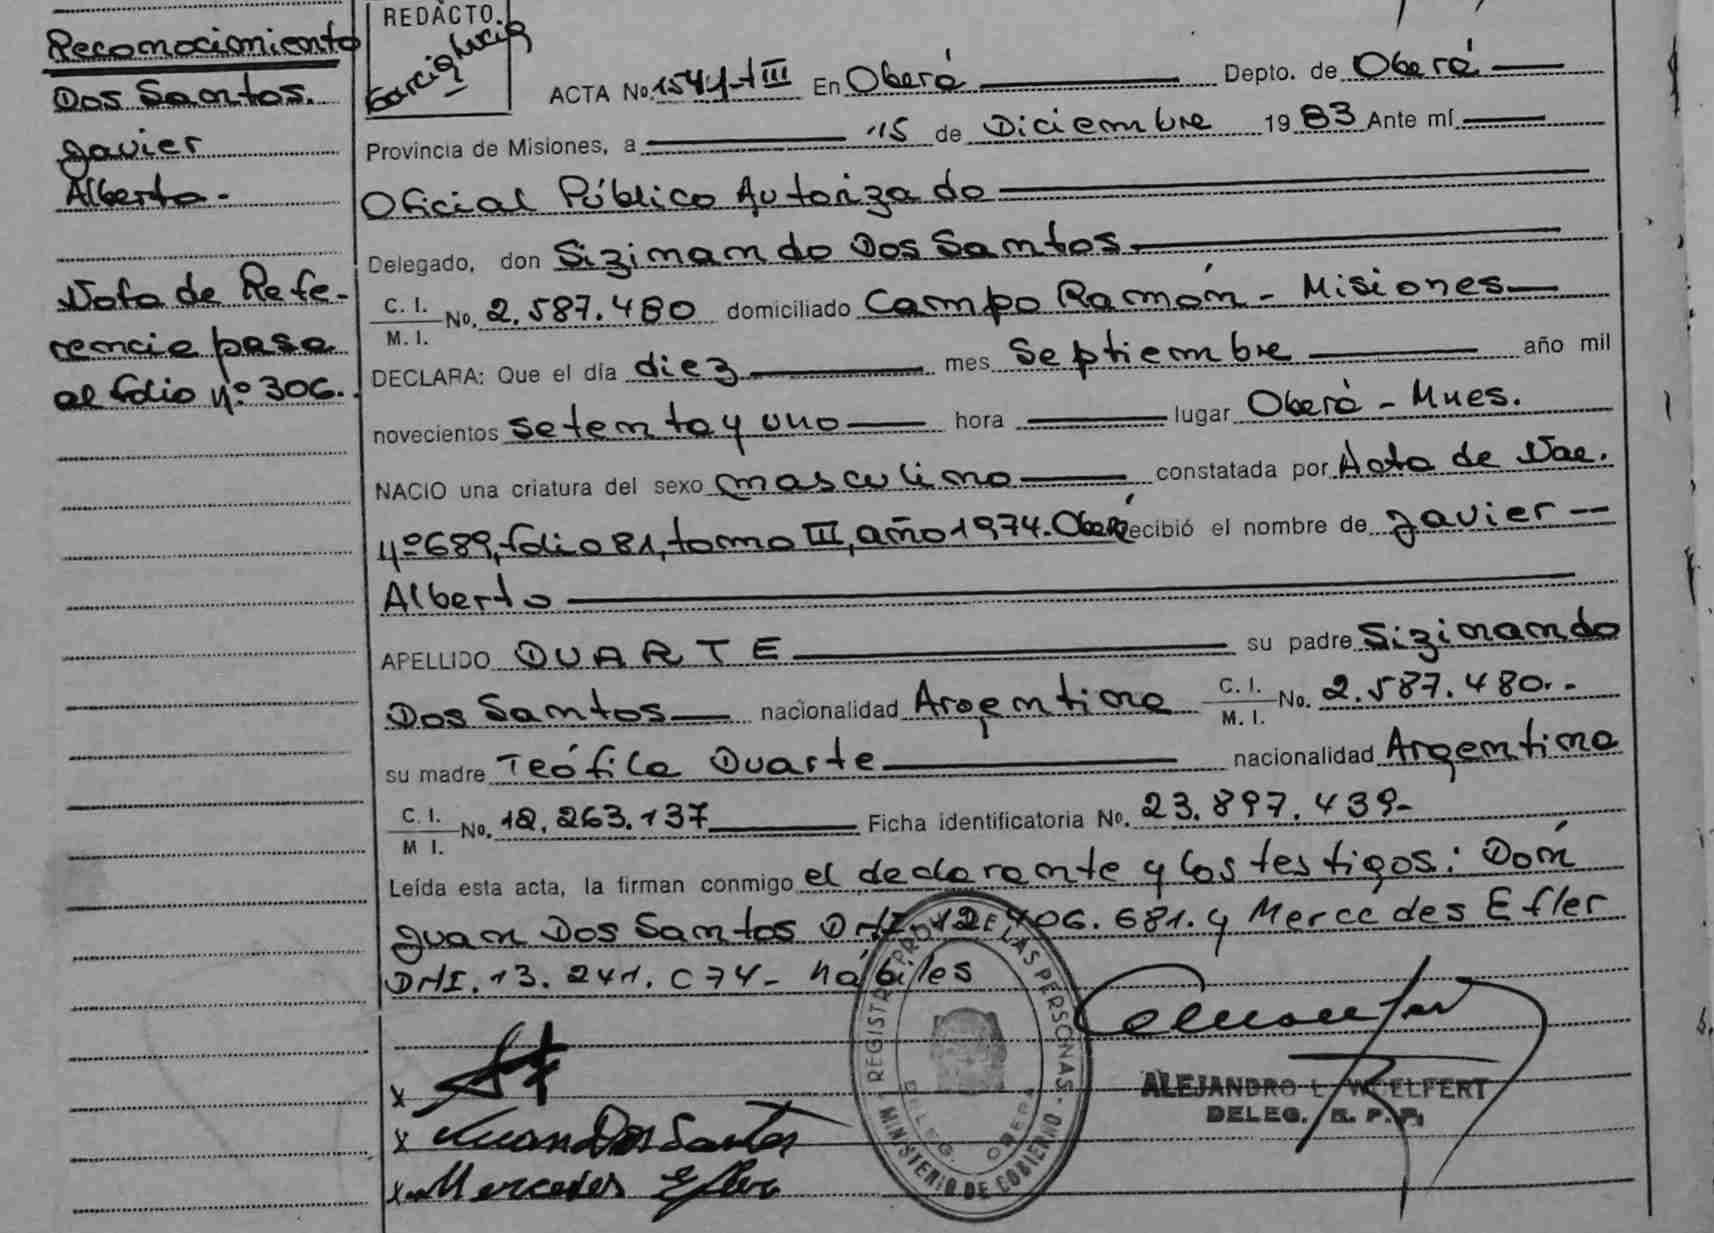 Reconocimiento
Dos Santos.
Javier
Alberto.-
Nota de Refe-
rencia pasa
al folio nº 306.-
REDACTO.
García Lucía
ACTA No. 1541-tIII En Oberá Depto. de Oberá
Provincia de Misiones, a 15 de Diciembre 1983 Ante mí
Oficial Público Autorizado
Delegado, don Sizinando Dos Santos
C. I. / M. I. No. 2.587.480 domiciliado Campo Ramón - Misiones
DECLARA: Que el día diez mes Septiembre año mil
novecientos setenta y uno hora lugar Oberá - Mnes.
NACIO una criatura del sexo masculino constatada por Acta de Nac.
nº 689, folio 81, tomo III, año 1974. Oberá recibió el nombre de Javier --
Alberto
APELLIDO DUARTE su padre Sizinando
Dos Santos nacionalidad Argentina C. I. / M. I. No. 2.587.480.-
su madre Teófila Duarte nacionalidad Argentina
C. I. / M I. No. 12.263.137 Ficha identificatoria No. 23.897.439-
Leída esta acta, la firman conmigo el declarante y los testigos: Don
Juan Dos Santos DNI 12.406.681. y Mercedes Efler
DNI. 13.241.074- hábiles
REGISTRO PROV. DE LAS PERSONAS - MINISTERIO DE GOBIERNO
DELEG. OBERA
ALEJANDRO L. WELFERT
DELEG. R. P. P.
x
x Juan Dos Santos
x Mercedes Efler